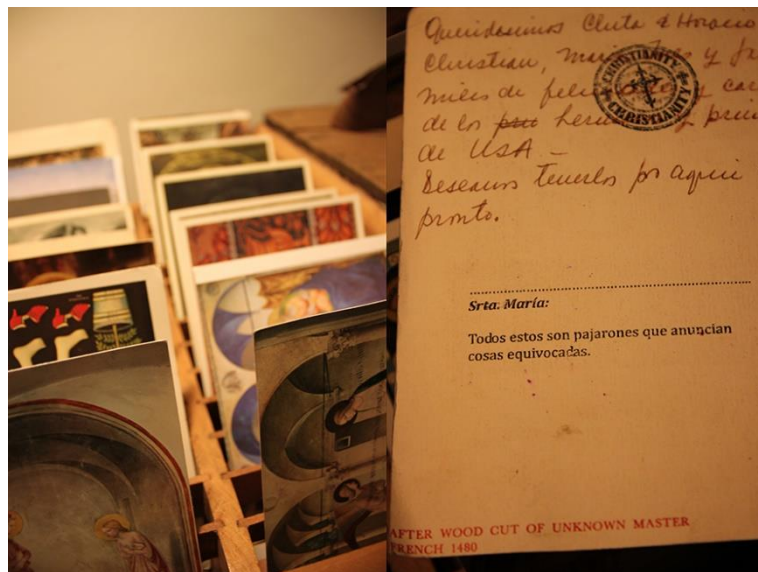 Queridisimos Chita & Horacio
Christian, y
miles de
de los pri y
de USA -
Deseamos tenerlos por aquí
pronto.
CHRISTIANITY
CHRISTIANITY
Srta. María:
Todos estos son pajarones que anuncian
cosas equivocadas.
AFTER WOOD CUT OF UNKNOWN MASTER
FRENCH 1480